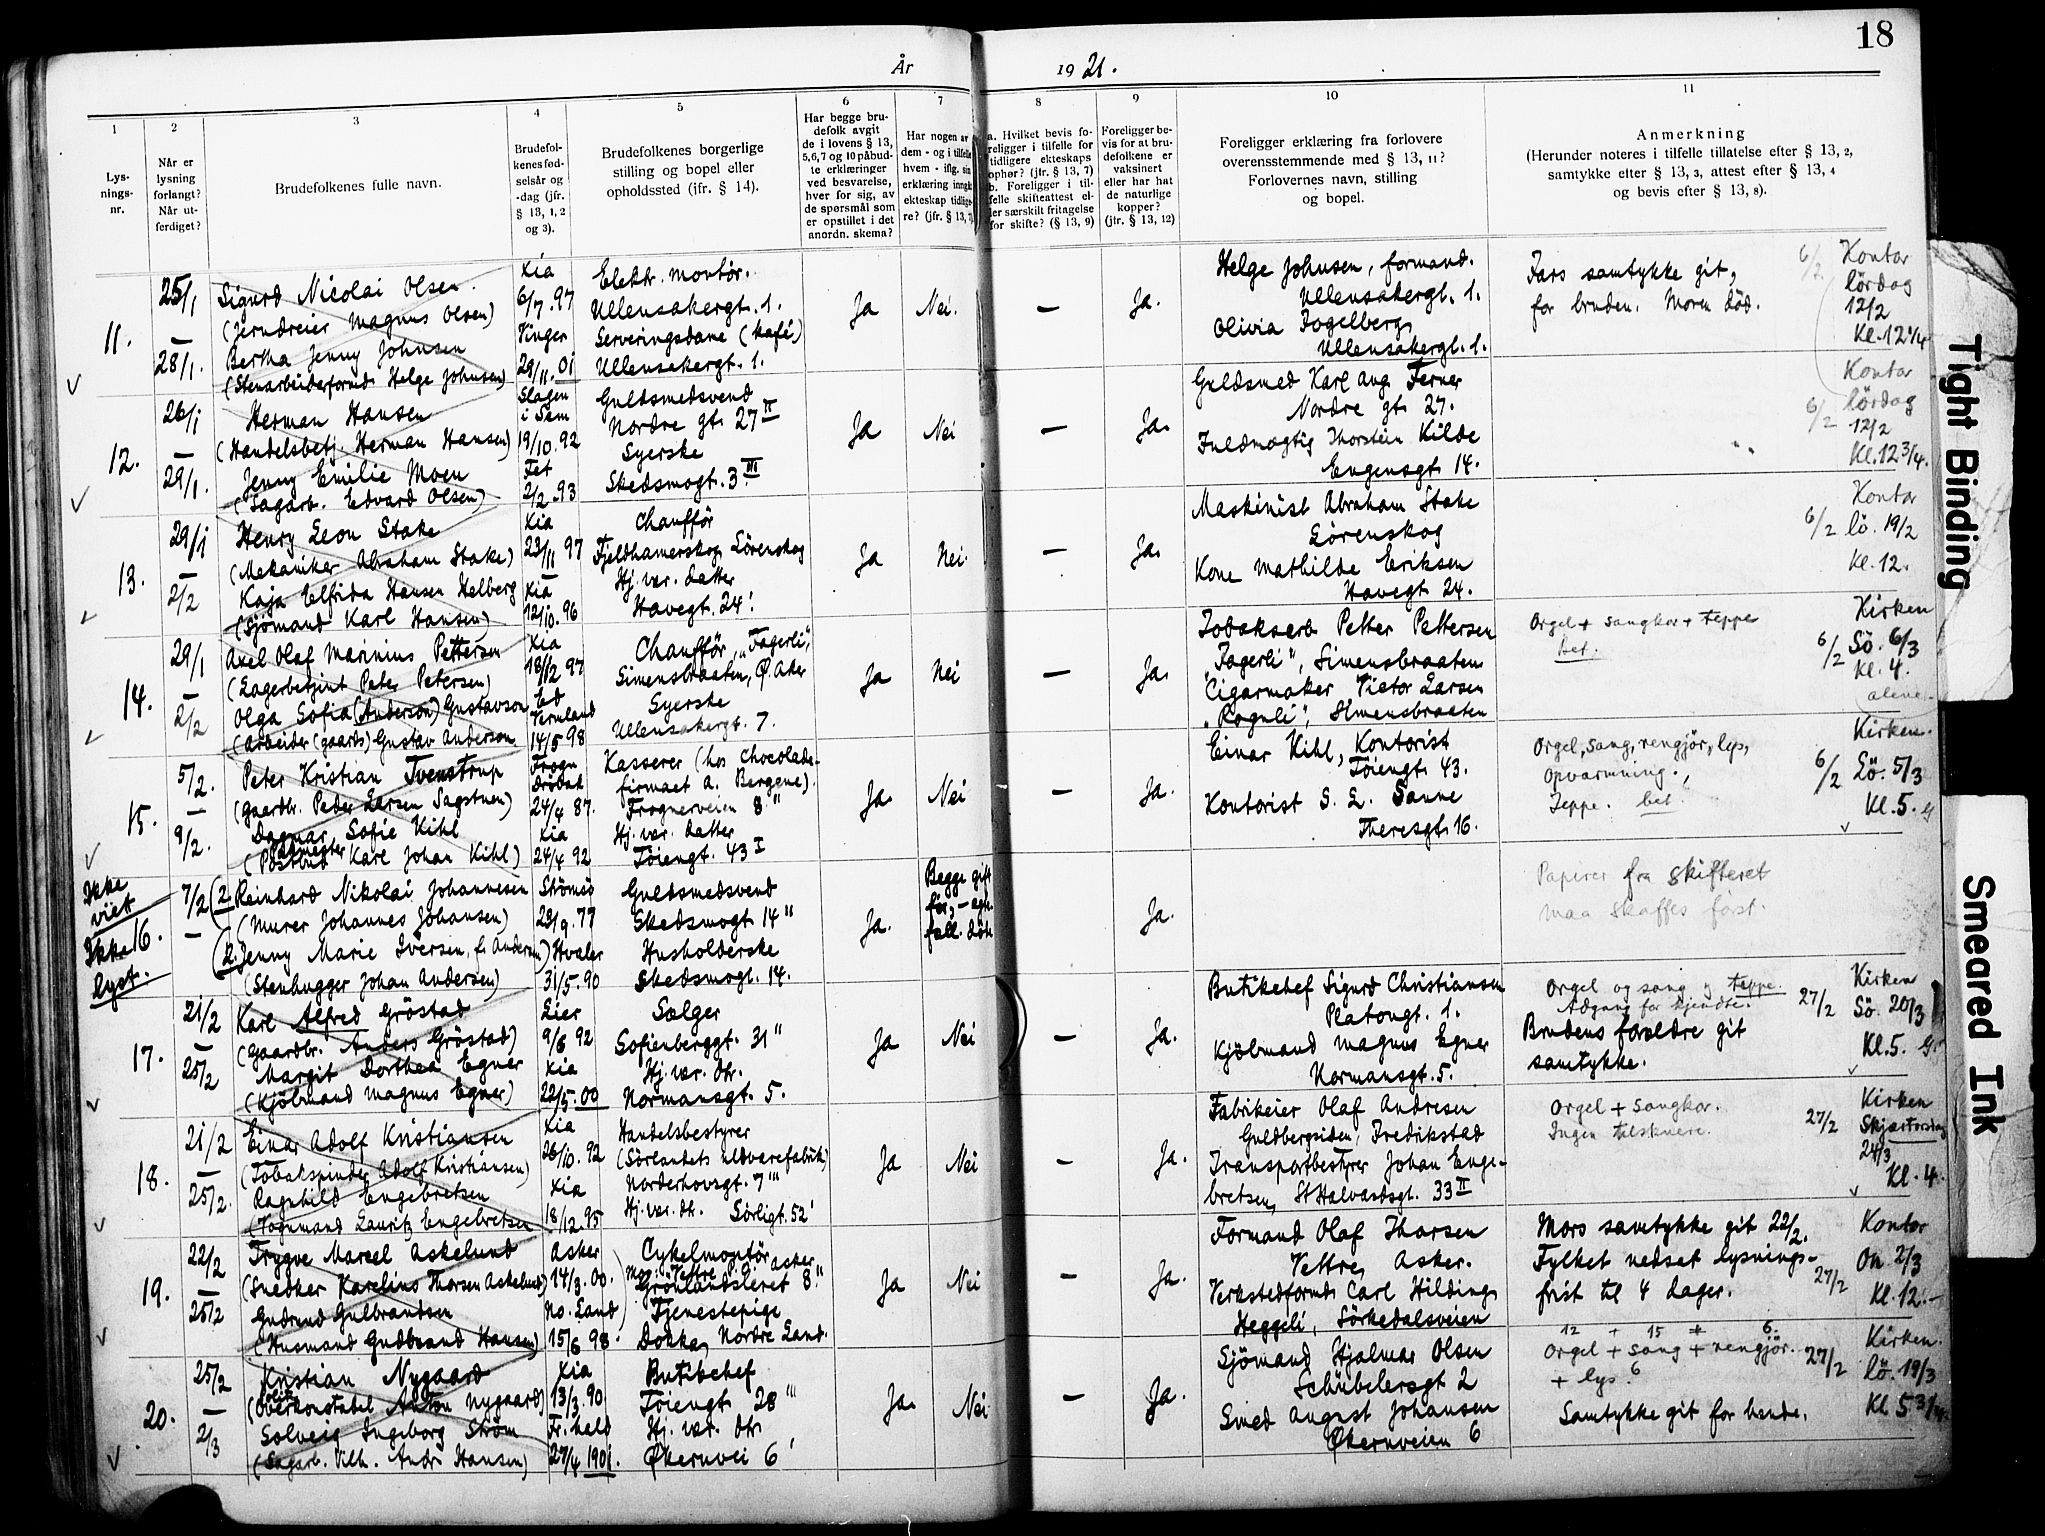 18
År 1921.
1
2
3
4
5
6
7
8
9
10
11
Lysningsnr.
Når er lysning forlangt? Når utferdiget?
Brudefolkenes fulle navn.
Brudefolkenes fødselsår og -dag (jfr. § 13, 1, 2 og 3).
Brudefolkenes borgerlige stilling og bopel eller opholdssted (jfr. § 14).
Har begge brudefolk avgit de i lovens § 13, 5,6,7 og 10 påbudte erklæringer ved besvarelse, hver for sig, av de spørsmål som er opstillet i det anordn. skema?
Har nogen av dem - og i tilfelle hvem - iflg. sin erklæring inngåt ekteskap tidligere? (jfr. § 13, 7)
a. Hvilket bevis foreligger i tilfelle for tidligere ekteskaps ophør? (jfr. § 13, 7)
b. Foreligger i tilfelle skifteattest eller særskilt fritagelse for skifte? (§ 13, 9)
Foreligger bevis for at brudefolkene er vaksinert eller har hat de naturlige kopper? (jfr. § 13, 12)
Foreligger erklæring fra forlovere overensstemmende med § 13, 11? Forlovernes navn, stilling og bopel.
Anmerkning
(Herunder noteres i tilfelle tillatelse efter § 13, 2, samtykke efter § 13, 3, attest efter § 13, 4 og bevis efter § 13, 8).
11.
25/1
—
28/1.
Sigurd Nicolai Olsen
(Jerndreier Magnus Olsen)
Bertha Jenny Johnsen
(Stenarbeiderformd. Helge Johnsen)
Kia
6/7.97
Vinger
29/11.01
Elektr. montør.
Ullensakergt. 1.
Serveringsdame (kafé)
Ullensakergt. 1.
Ja
Nei.
—
Ja.
Helge Johnsen, formand.
Ullensakergt. 1.
Olivia Fogelberg,
Ullensakergt. 1.
Fars samtykke git,
for bruden. Moren död.
6/2
Kontor
lördag
12/2
Kl. 12 1/4
12.
26/1
—
29/1.
Herman Hansen
(Handelsbetj. Herman Hansen)
Jenny Emilie Moen
(Sagarb. Edvard Olsen)
Slagen
i Sem
19/10.92
Fet
2/2.93
Guldsmedsvend
Nordre gt. 27 II
Syerske
Skedsmogt. 3 III
Ja
Nei
—
Ja.
Guldsmed Karl Aug. Ferner
Nordre gt. 27.
Fuldmægtig Thorstein Kilde
Eugensgt. 14.
6/2
Kontor
lördag
12/2
Kl. 12 3/4.
13.
29/1
—
2/2
Henry Leon Stake
(Mekaniker Abraham Stake)
Kaja Elfrida Hansen Helberg
(Sjömand Karl Hansen)
Kia
23/11 97
Kia
12/10.96
Chauffør
Fjeldhamerskog Lörenskog
Hj. vær. datter
Havegt. 24.
Ja
Nei.
—
Ja.
Maskinist Abraham Stake
Lörenskog
Kone Mathilde Eriksen
Havegt. 24.
6/2
Kontor
lö. 19/2
Kl. 12.
14.
29/1
—
2/2
Axel Olaf Marinius Pettersen
(Lagerbetjent Peter Petersen)
Olga Sofia (Anderson) Gustavson
(Arbeider (gaards) Gustav Anderson
Kia
18/12 97
Ed
Vermland
14/5 98
Chauffør, "Fagerli",
Simensbraaten, Ø. Aker
Syerske
Ullensakergt. 7.
Ja
Nei
—
Ja.
Tobaksarb. Petter Pettersen
"Fagerli", Simensbraaten
Cigarmaker Victor Larsen
"Rognli", Simensbraaten
Orgel + sangkor + teppe
bet.
6/2
Kirken
Sö. 6/3
Kl. 4.
alene.
15.
5/2.
—
9/2.
Peter Kristian Tvenstrup
(Gaardbr. Peder Larsen Sagstuen)
Dagmar Sofie Kihl
(Postbud Karl Johan Kihl)
Frogn
Dröbak
24/4 87.
Kia
24/4 92
Kasserer (hos Chocoladefirmaet A. Bergene).
Frognerveien 8 "
Hj. vær. datter
Töiengt. 43 I
Ja.
Nei
—
Ja.
Einar Kihl, Kontorist
Töiengt. 43.
Kontorist S. L. Sanne
Theresgt. 16.
Orgel, sang, rengjör, lys,
opvarmning.,
Teppe. bet.
6/2
Kirken.
Lö. 5/3
Kl. 5.
Ikke
viet
16.
Ikke
lyst.
7/2
—
(2. Reinhard Nikolai Johannesen
(Murer Johannes Johansen)
(2. Jenny Marie Iversen, f. Andersen)
(Stenhugger Johan Andersen)
Strömsö
28/9.77
Hvaler
31/5.90
Guldsmedsvend
Skedsmogt. 14 "
Husholderske
Skedsmogt. 14.
Ja.
Begge gift
før, — egt.
fall. döde
Ja.
Papirer fra skifteret
maa skaffes först.
17.
21/2
—
25/2
Karl Alfred Gröstad
(Gaardbr. Anders Gröstad)
Margit Dorthea Egner
(Kjöbmand Magnus Egner)
Lier
9/6 92
Kia
22/5.00
Sælger
Sofienberggt. 31 "
Hj. vær. dtr.
Normansgt. 5.
Ja
Nei
—
Ja.
Butikchef Sigurd Christiansen
Platougt. 1.
Kjöbmand Magnus Egner
Normansgt. 5.
Orgel og sang og teppe.
Adgang for kjendte.
Brudens forældre git
samtykke.
27/2
Kirken
Sö. 20/3
Kl. 5.
18.
21/2
—
25/2.
Einar Adolf Kristiansen
(Tobakspinder Adolf Kristiansen)
Ragnhild Engebretsen
(Vognmand Lauritz Engebretsen
Kia
26/10.92
Kia
18/12.95
Handelsbestyrer
(Sörlandets uldvarefabrik)
Norderhovsgt. 7 "'
Hj. vær. dt. Sörligt. 52'
Ja
Nei
—
Ja.
Fabrikeier Olaf Andresen
Guldbergsiden, Fredrikstad
Transportbestyrer Johan Engebretsen, St Halvardsgt. 33 II
Orgel + sangkor.
Ingen tilskuere.
27/2
Kirken
Skjærtorsdag
24/3
Kl. 4.
19.
22/2
—
25/2
Trygve Marcel Askelund
(Snedker Karelius Thorsen Askelund)
Gudrund Gulbrandsen
(Husmand Gudbrand Hansen)
Asker
14/3.00.
No. Land
15/6 98.
Cykelmontör
Vettre, Asker
Grönlandsleret 8 "
Tjenestepige
Dokka, Nordre Land.
Ja
Nei
—
Ja.
Formand Olaf Thorsen
Vettre, Asker.
Verkstedformd. Carl Hilding,
Heggeli, Sörkedalsveien
Mors samtykke git 22/2.
Fylket nedsat lysningsfrist til 4 dager.
27/2
Kontor
On. 2/3
Kl. 12.—
20.
25/2
—
2/3
Kristian Nygaard
(Overkonstabel Anton Nygaard)
Solveig Ingeborg Ström
(Sagarb. Vilh. Andr. Hansen)
Kia
13/3.90
Fr.hald
27/4 1901.
Butikchef
Töiengt. 28 "'
Hj. vær. dtr
Økernvei 6'
Ja.
Nei
—
Ja.
Sjömand Hjalmar Olsen
Schübelersgt 2
Smed August Johansen
Økernveien 6
12 + 15 + 6.
Orgel + sang + rengjör.
+ lys. 6
Samtykke git for hende.
27/2
Kirken.
Lö. 19/3
Kl 5 3/4.
Tight Binding
Smeared Ink